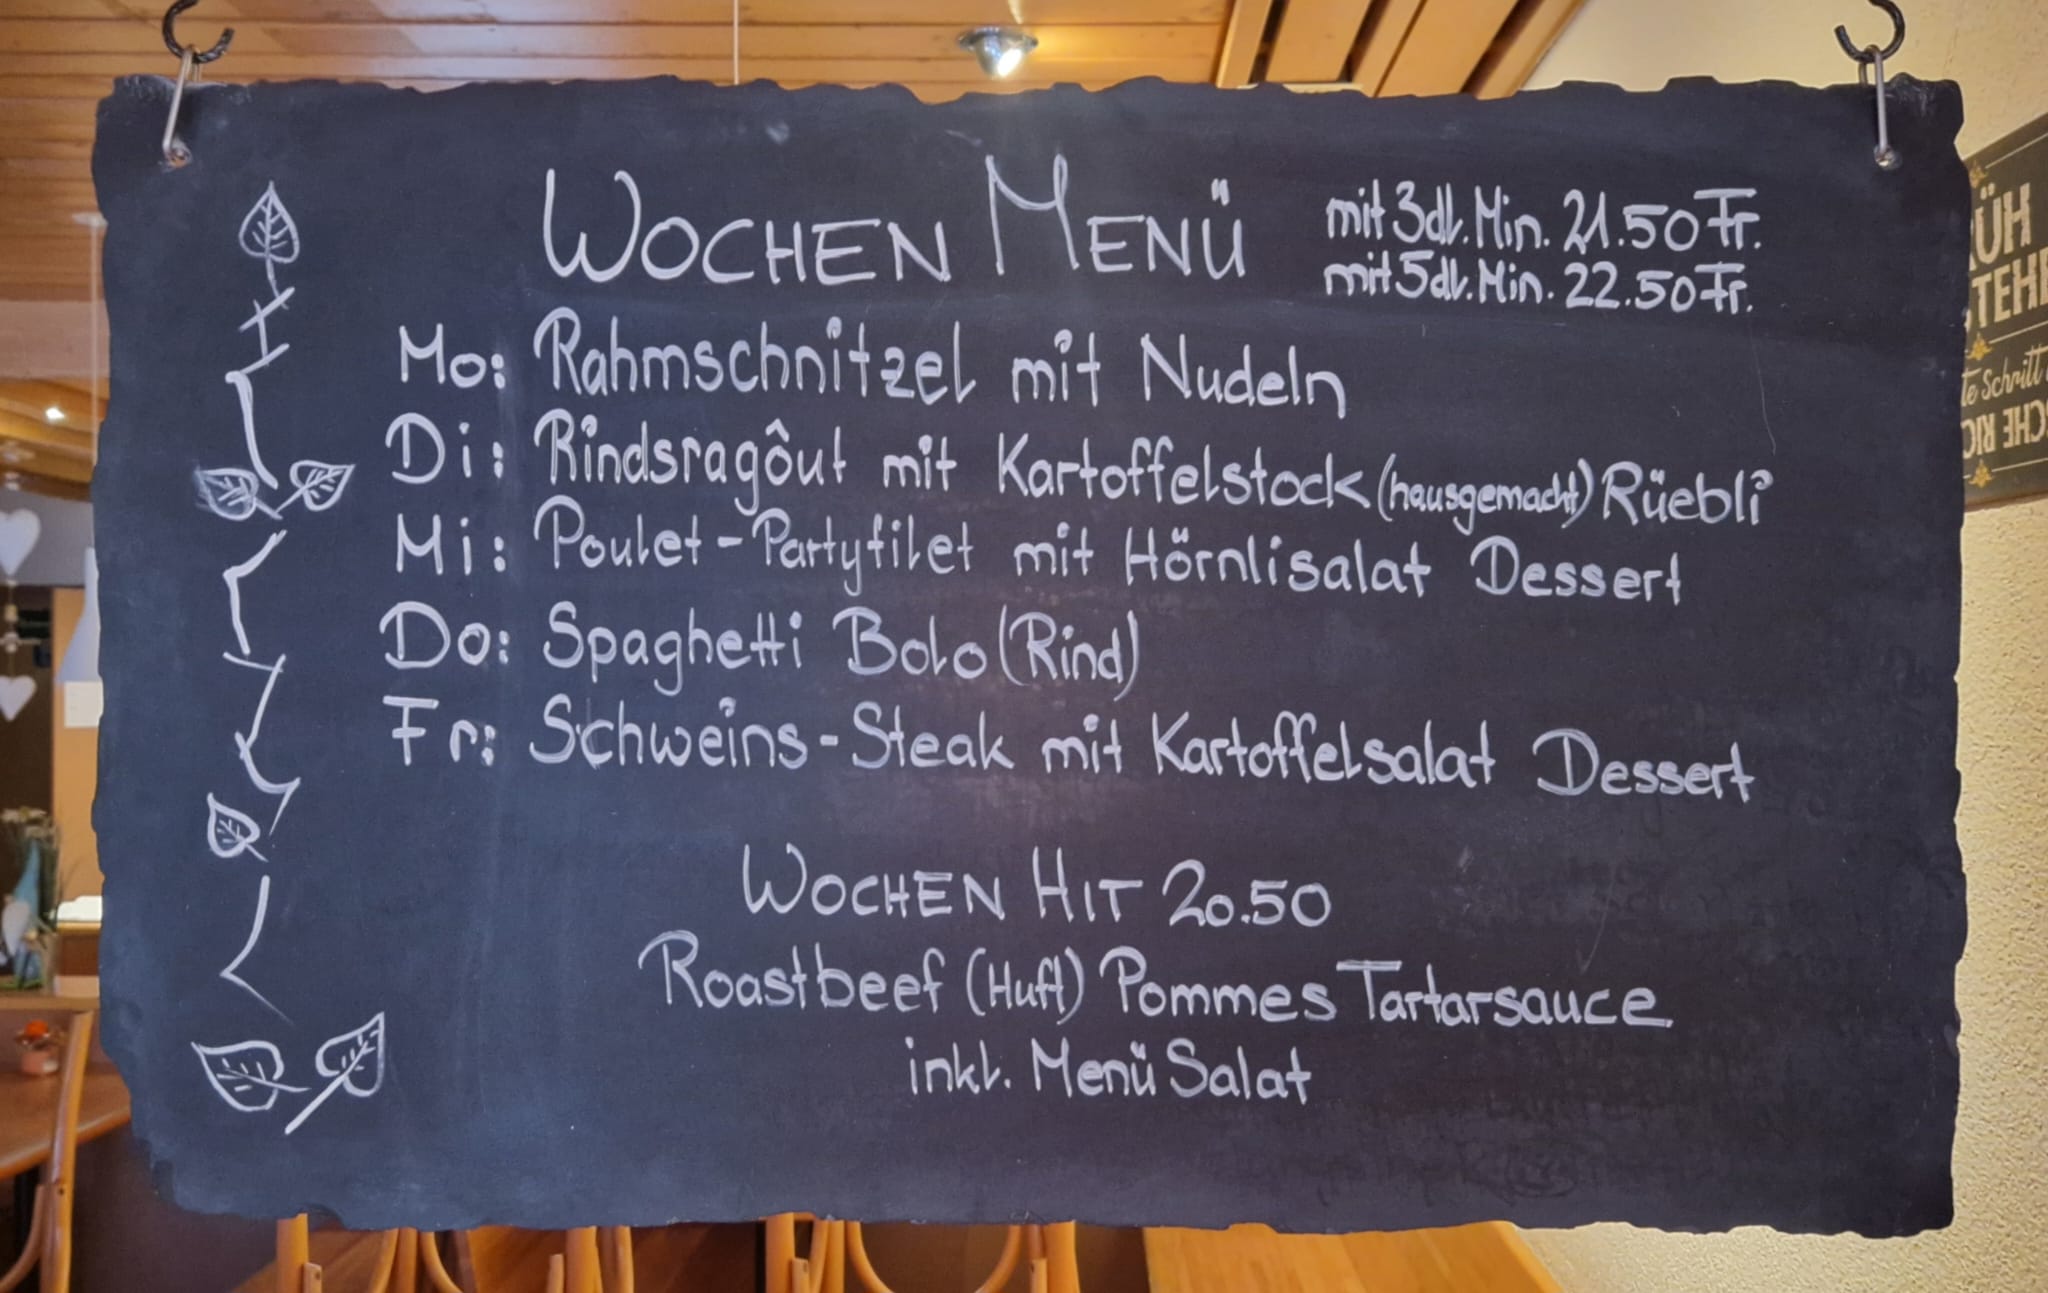 WOCHEN MENÜ
mit 3dl. Min. 21.50 Fr.
mit 5dl. Min. 22.50 Fr.
Mo: Rahmschnitzel mit Nudeln
Di: Rindsragôut mit Kartoffelstock (hausgemacht) Rüebli
Mi: Poulet-Partyfilet mit Hörnlisalat Dessert
Do: Spaghetti Bolo (Rind)
Fr: Schweins-Steak mit Kartoffelsalat Dessert
WOCHEN HIT 20.50
Roastbeef (Huft) Pommes Tartarsauce
inkl. Menü Salat